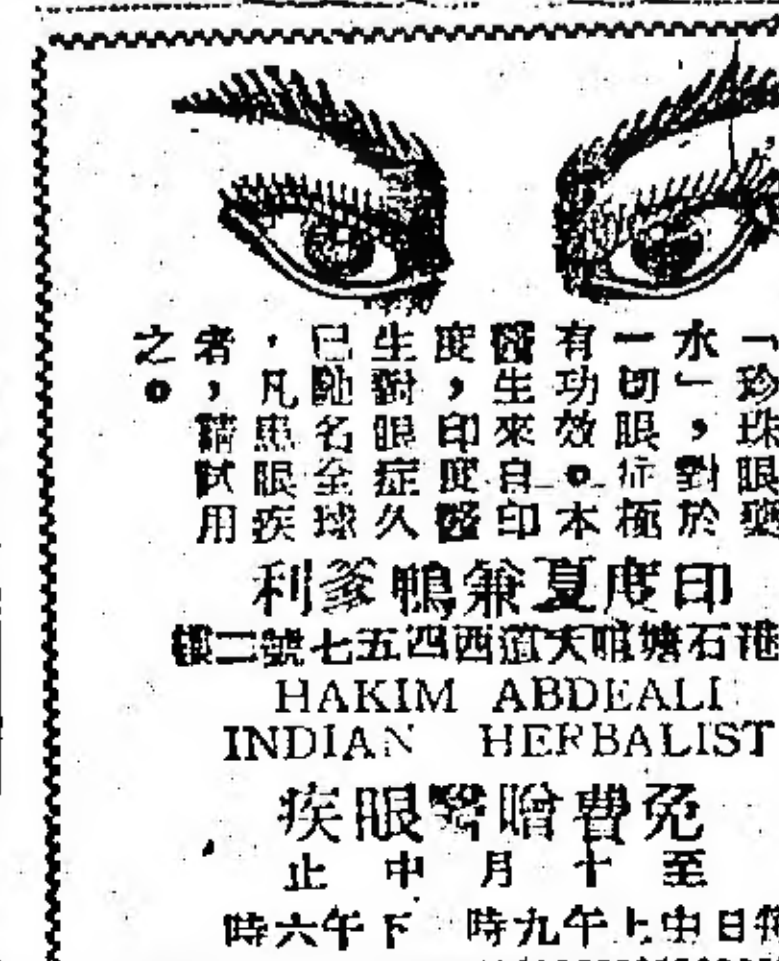 「珍珠眼藥
水」,對於
一切眼症極
有功效。本
醫生來自印
度,印度醫
生對眼症久
已馳名全球
,凡患眼疾
者,請試用
之。
印度夏兼鴨爹利
港石塘咀大道西四五七號二樓
HAKIM ABDEALI
INDIAN HERBALIST
免費贈醫眼疾
至十月中止
每日由上午九時 下午六時